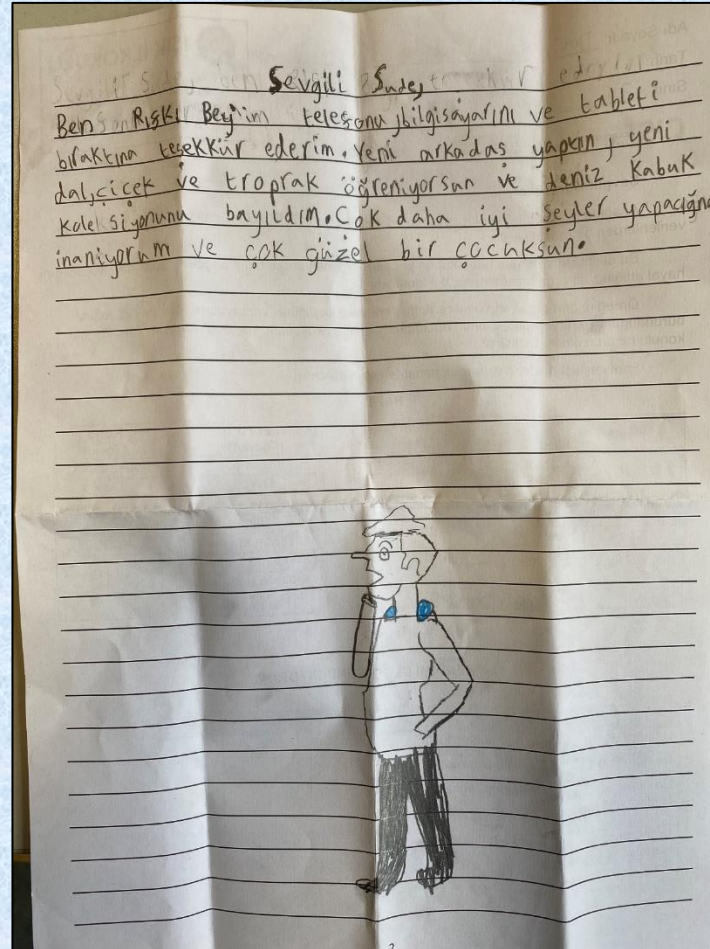 Sevgili Sude,
Ben Rıskı Bey'im telefonu, bilgisayarını ve tableti
bıraktına teşekkür ederim. Yeni arkadaş yaptın, yeni
dal, çiçek ve troprak öğreniyorsun ve deniz Kabuk
koleksiyonunu bayıldım. Çok daha iyi şeyler yapacığna
inaniyorum ve çok güzel bir çocuksun.
2